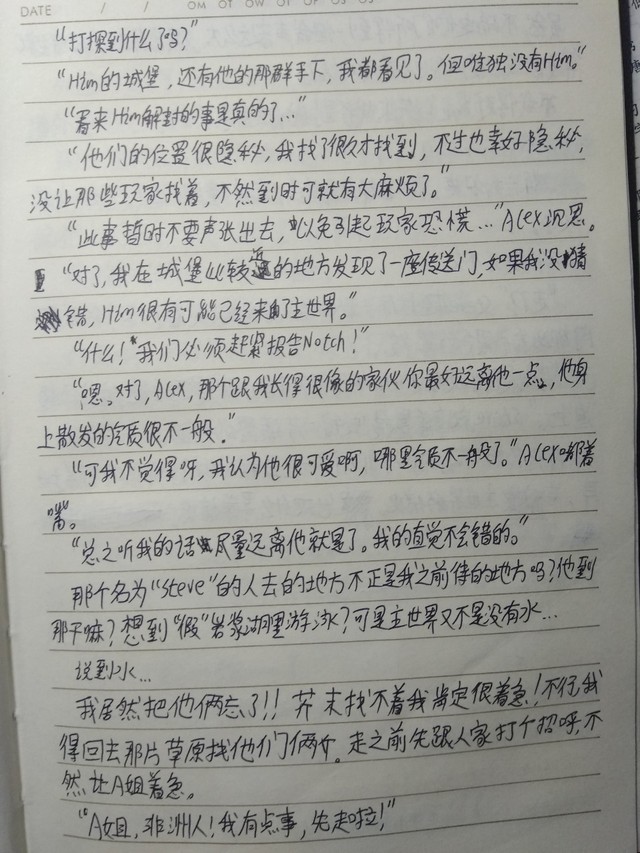 DATE / /
"打探到什么了吗?"
"Him的城堡,还有他的那群手下,我都看见了。但唯独没有Him。"
"看来Him解封的事是真的了…"
"他们的位置很隐秘,我找了很久才找到,不过也幸好隐秘,
没让那些玩家找着,不然到时可就有大麻烦了。"
"此事暂时不要声张出去,以免引起玩家恐慌…"Alex沉思。
"对了,我在城堡比较远的地方发现了一座传送门,如果我没猜
错,Him很有可能已经来了主世界。"
"什么!我们必须赶紧报告Notch!"
"嗯。对了,Alex,那个跟我长得很像的家伙你最好远离他一点,他身
上散发的气质很不一般。"
"可我不觉得呀,我认为他很可爱啊,哪里气质不一般了。"Alex嘟着
嘴。
"总之听我的话尽量远离他就是了。我的直觉不会错的。"
那个名为"Steve"的人去的地方不正是我之前待的地方吗?他到
那干嘛?想到"假"岩浆湖里游泳?可是主世界又不是没有水…
说到水…
我居然把他俩忘了!!芥末找不着我肯定很着急!不行,我
得回去那片草原找他们俩个。走之前先跟人家打个招呼,不
然让A姐着急。
"A姐,非洲人!我有点事,先走啦!"